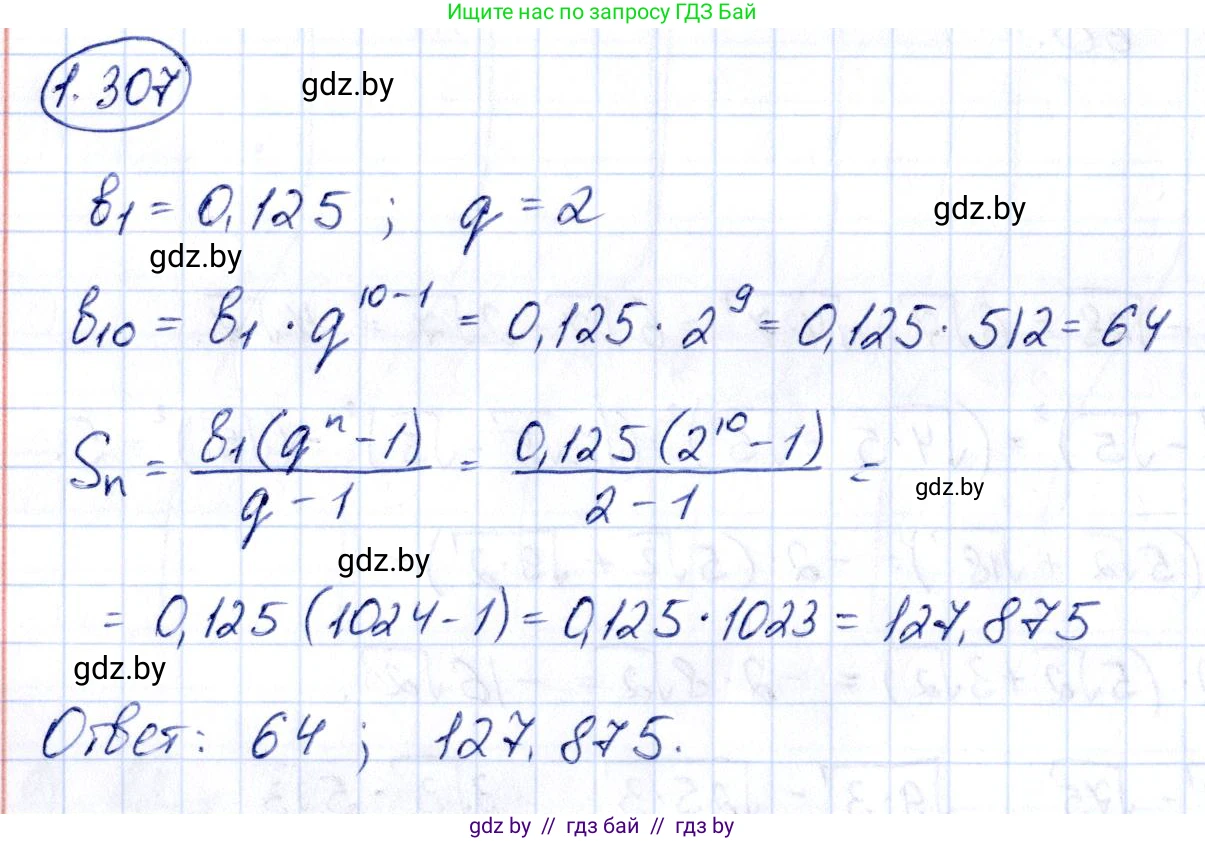 Ищите нас по запросу ГДЗ Бай
1.307 gdz.by
b₁ = 0,125 ; q = 2 gdz.by
gdz.by
b₁₀ = b₁ · q¹⁰⁻¹ = 0,125 · 2⁹ = 0,125 · 512 = 64
Sₙ = b₁(qⁿ - 1) / (q - 1) = 0,125 (2¹⁰ - 1) / (2 - 1) =
gdz.by
gdz.by
= 0,125 (1024 - 1) = 0,125 · 1023 = 127,875
gdz.by
Ответ: 64 ; 127,875.
gdz.by // гдз бай // гдз by